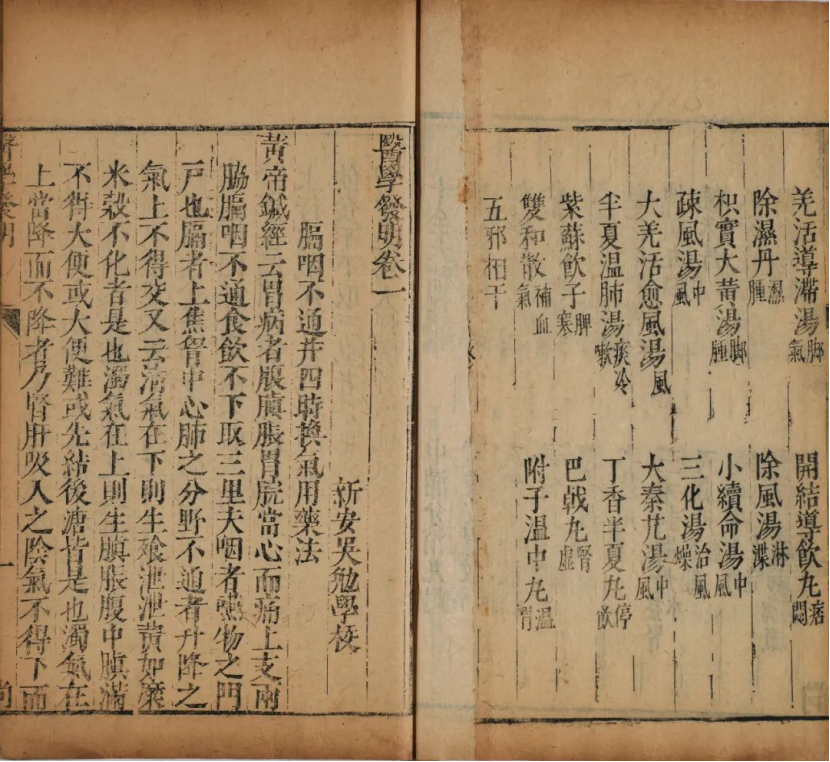 羌活導滯湯脚氣 開結導飲丸痞悶
除濕丹濕腫 除風湯淋渫
枳實大黃湯脚腫 小續命湯中風
疎風湯中風 三化湯治風燥
大羌活愈風湯風 大秦艽湯中風
半夏溫肺湯痰冷嗽 丁香半夏丸停飲
紫蘇飲子脾寒 巴戟丸腎虛
雙和散補血氣 附子溫中丸溫胃
五邪相干
醫學發明卷一
新安吳勉學校
膈咽不通并四時換氣用藥法
黃帝鍼經云胃病者腹䐜脹胃脘當心而痛上支兩
脇膈咽不通食飲不下取三里夫咽者嚥物之門
戶也膈者上焦胷中心肺之分野不通者升降之
氣上不得交又云清氣在下則生飱泄泄黃如糜
米穀不化者是也濁氣在上則生䐜脹腹中䐜滿
不得大便或大便難或先結後溏皆是也濁氣在
上當降而不降者乃腎肝吸入之陰氣不得下而
醫學發明 一